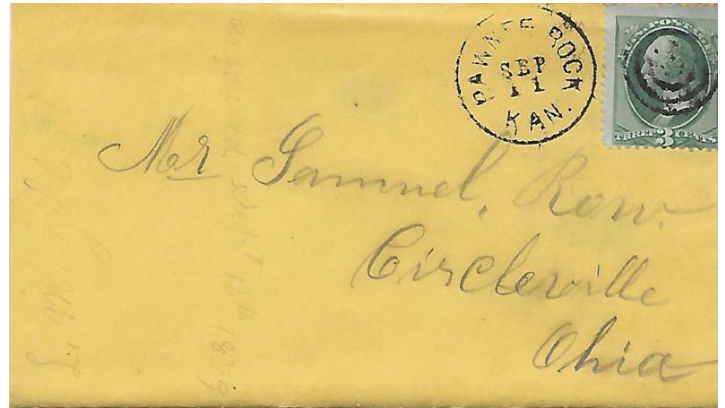 PAWNEE ROCK
SEP
11
KAN.
U.S. POSTAGE
THREE 3 CENTS
Mr Samuel, Row.
Circleville
Ohio
1879